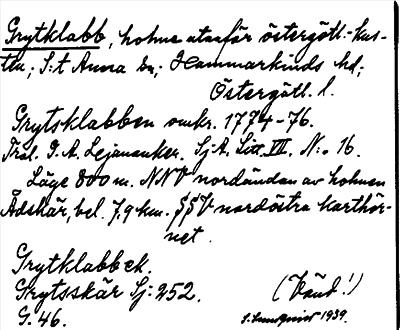 Grytklabb, holme utanför östergötl.-kus-
ten; S:t Anna sn; Hammarkinds hd;
Östergötl. l.
Grytsklabben omkr. 1774-76.
Träl. G. A. Lejonanker. Sj. A. Litt. VII. N:o 16.
Läge 800 m. NNV nordändan av holmen
Ådskär, bel. 7.9 km. SSV nordöstra karthör-
net.
Grytklabbek.
Grytsskär Sj: 252. (Vänd!)
G. 46. S. Lundqvist 1939.